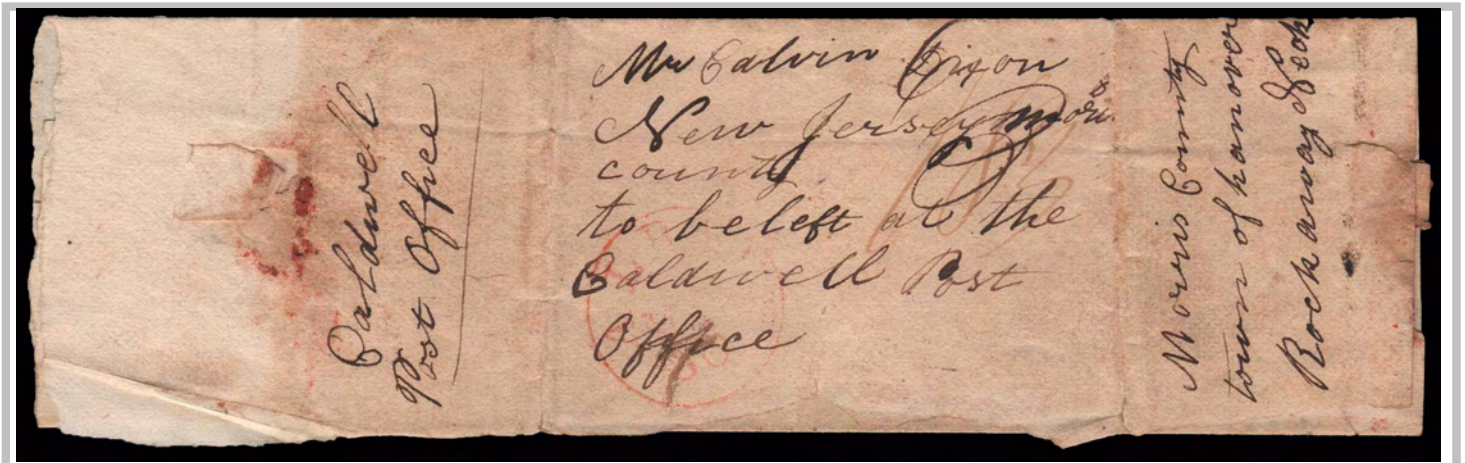 Caldwell
Post Office
Mr Calvin Dixon
New Jersey
county
to be left at the
Caldwell Post
Office
Morris County
town of hanover
Rockaway Neck